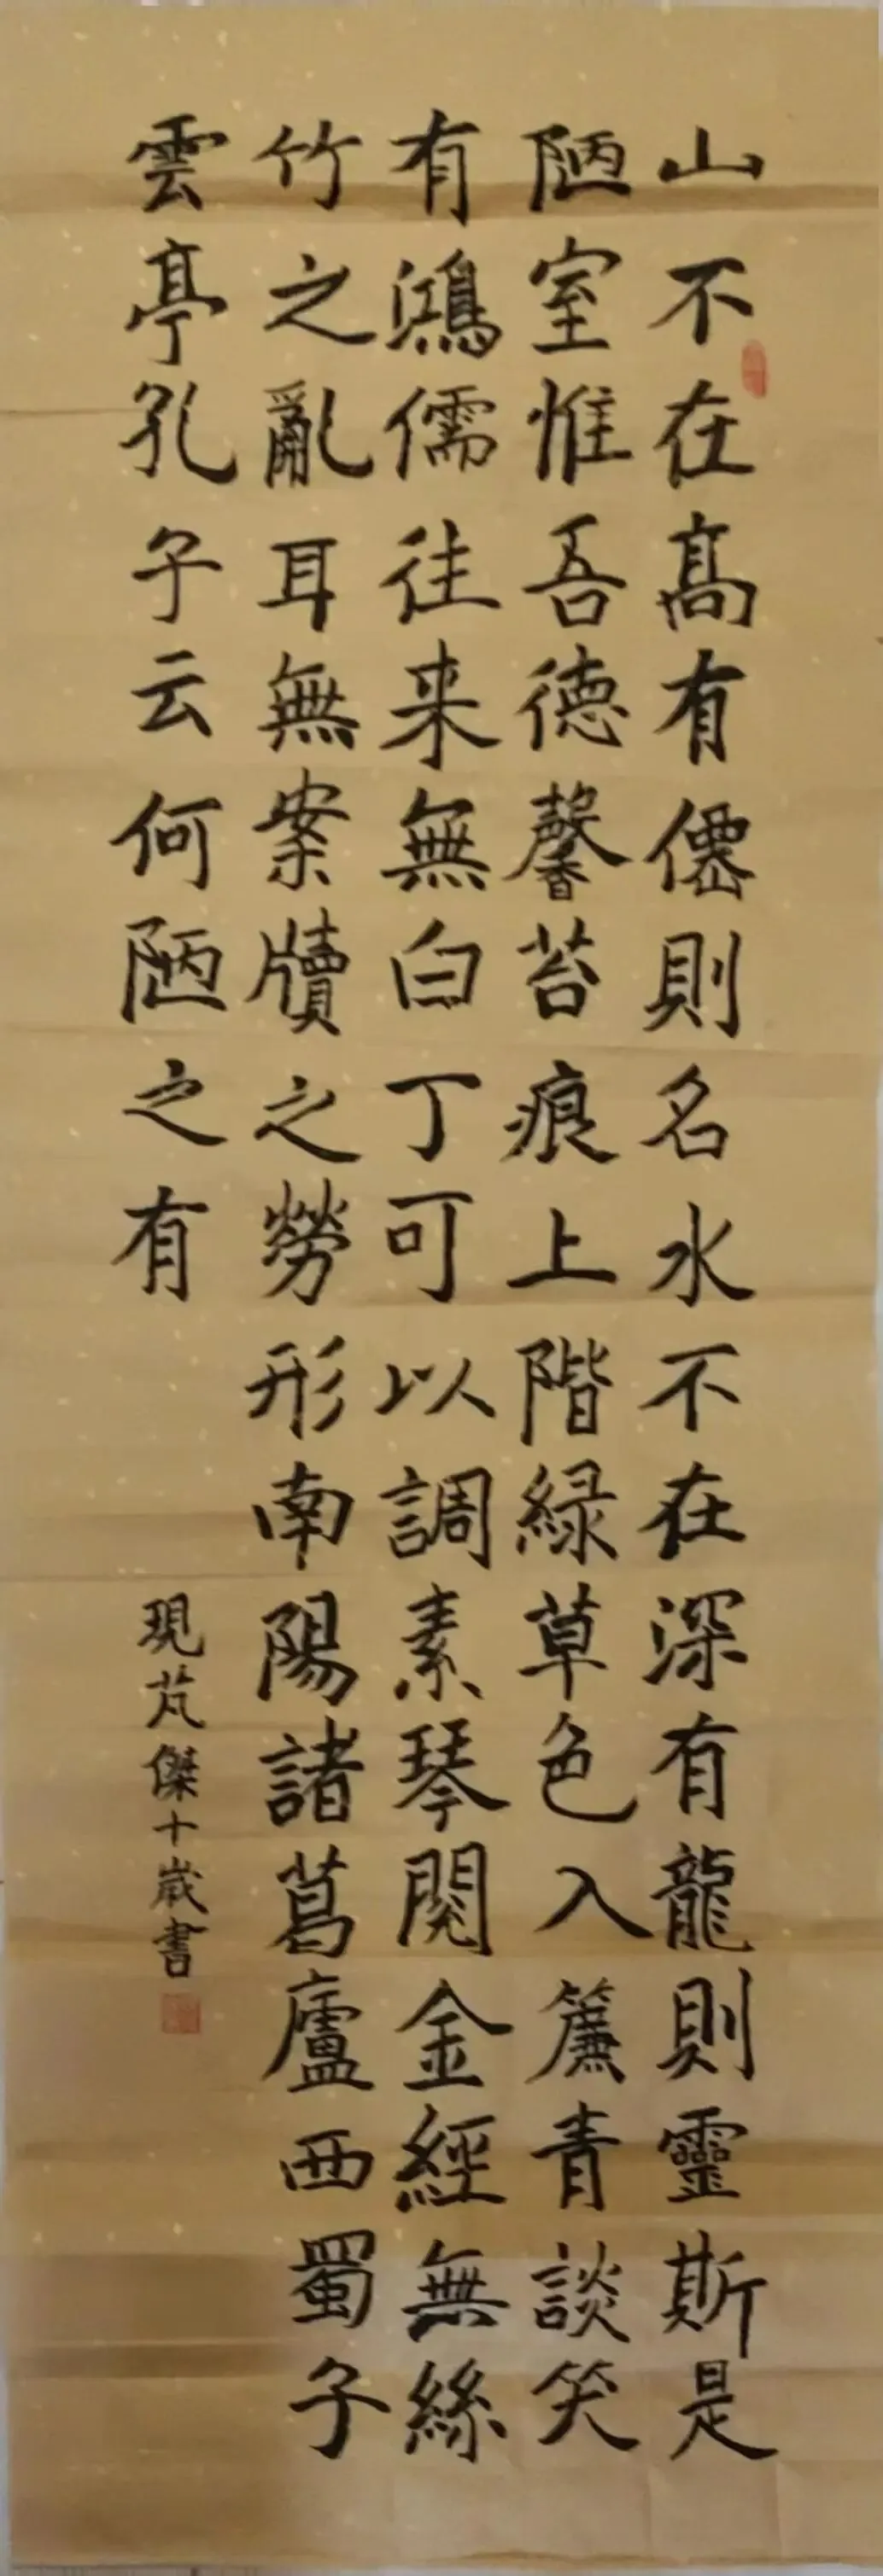 山不在高有僊則名水不在深有龍則靈斯是
陋室惟吾德馨苔痕上階緑草色入簾青談笑
有鴻儒往来無白丁可以調素琴閱金經無絲
竹之亂耳無案牘之勞形南陽諸葛廬西蜀子
雲亭孔子云何陋之有
現芃傑十歲書